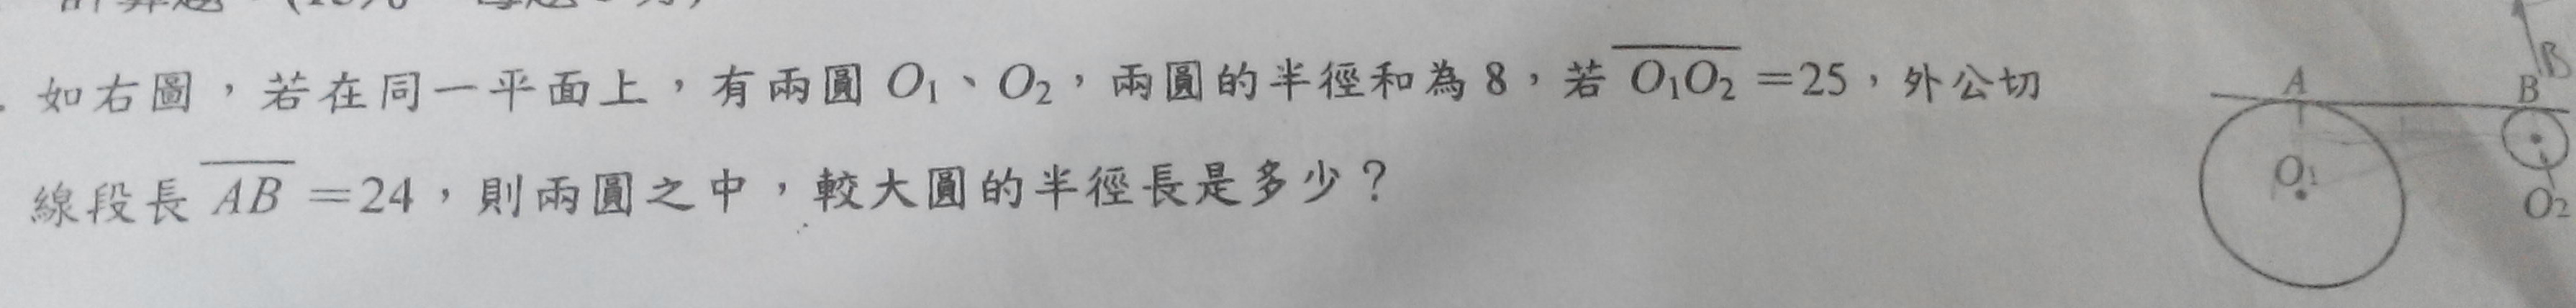 如右圖，若在同一平面上，有兩圓 O₁、O₂，兩圓的半徑和為 8，若 O₁O₂ =25，外公切
線段長 AB =24，則兩圓之中，較大圓的半徑長是多少？
A
B
B
O₁
O₂